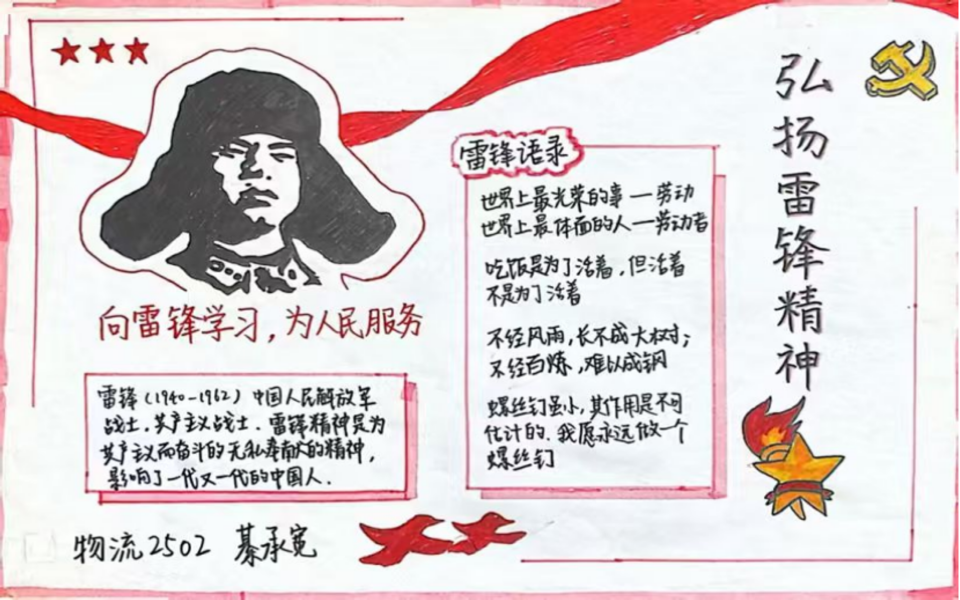 弘扬雷锋精神
向雷锋学习，为人民服务
雷锋（1940-1962）中国人民解放军
战士，共产主义战士．雷锋精神是为
共产主义而奋斗的无私奉献的精神，
影响了一代又一代的中国人．
雷锋语录
世界上最光荣的事—劳动
世界上最体面的人—劳动者
吃饭是为了活着，但活着
不是为了活着
不经风雨，长不成大树；
不经百炼，难以成钢
螺丝钉虽小，其作用是不可
估计的．我愿永远做一个
螺丝钉
物流2502 綦承宽